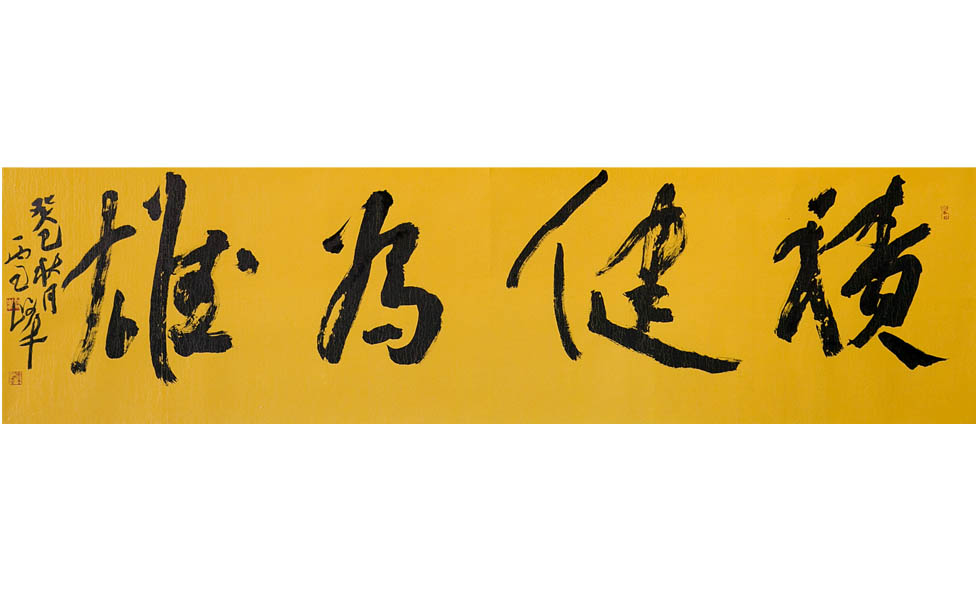 積健為雄
癸巳秋月